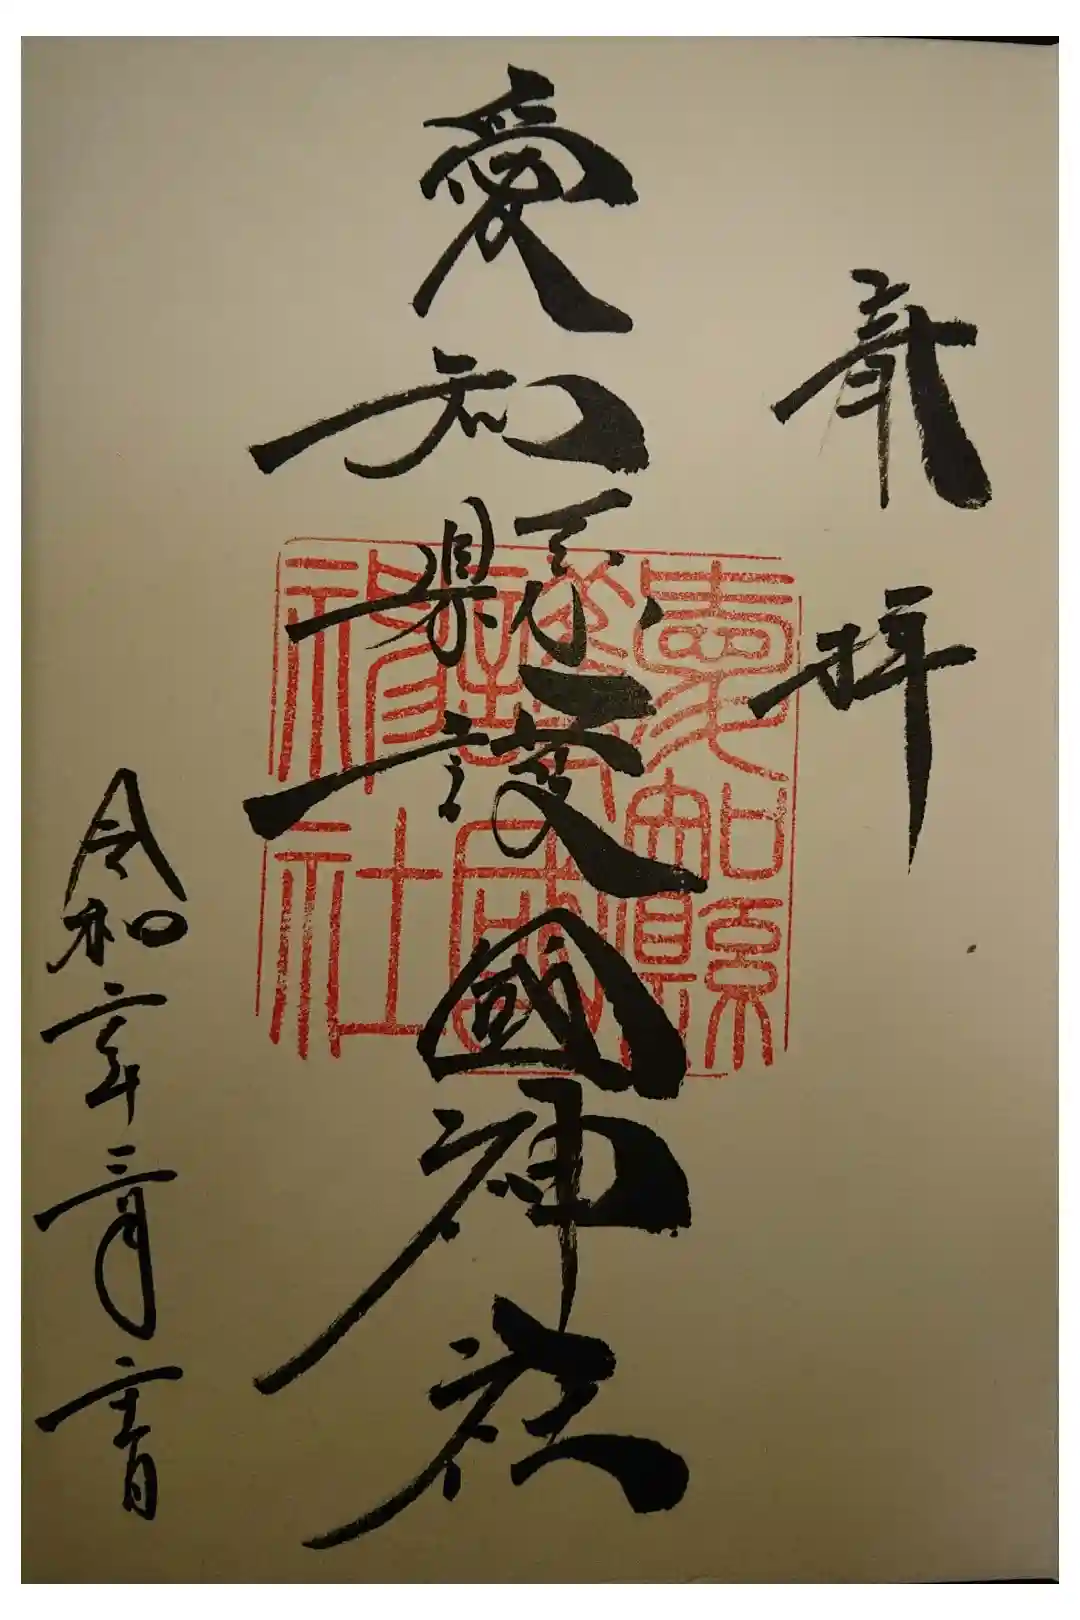 奉拝
愛知縣護國神社
愛知縣
護國
神社
令和二年三月二十一日